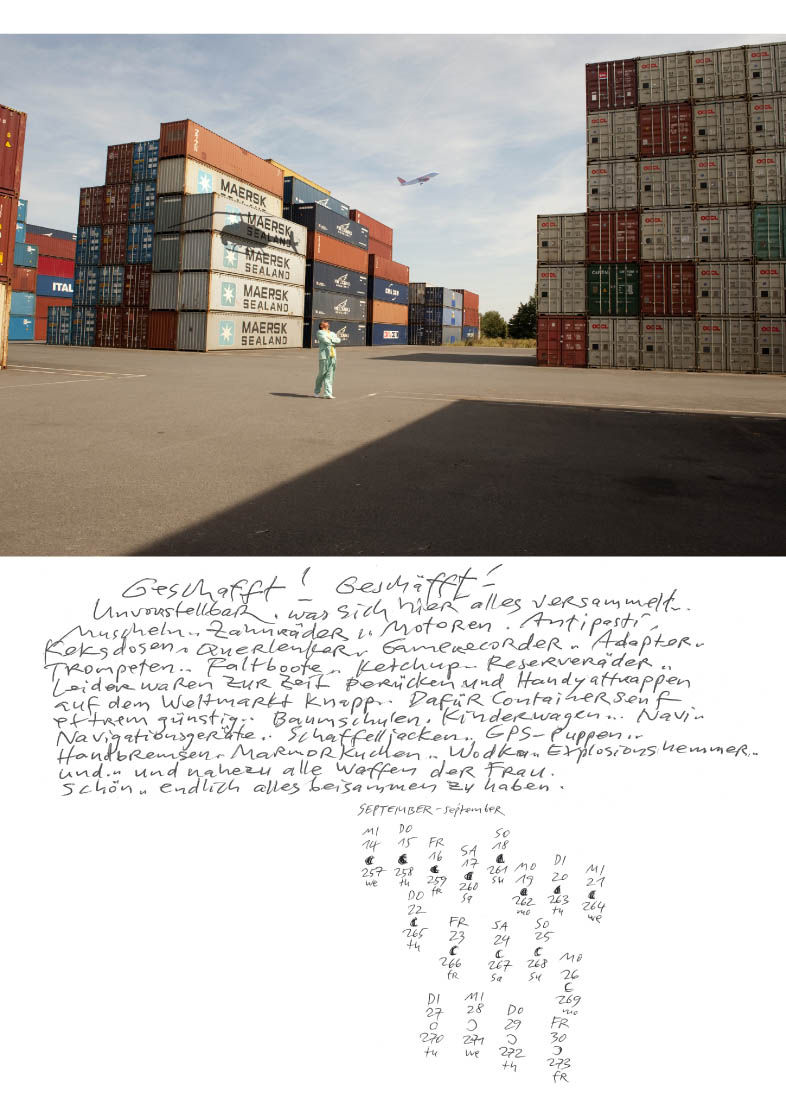 OOCL OOCL OOCL
MAERSK
MAERSK
SEALAND
MAERSK
SEALAND
MAERSK
SEALAND
MAERSK
SEALAND
ITAL
CAPITAL
Geschafft! Geschäfft!
Unvorstellbar, was sich hier alles versammelt.
Muscheln.. Zahnräder.. Motoren. Antipasti,
Keksdosen.. Querlenker.. Gamerecorder.. Adapter..
Trompeten.. Faltboote.. Ketchup.. Reserveräder..
Leider waren zur Zeit Perücken und Handyattrappen
auf dem Weltmarkt knapp.. Dafür Containersenf
extrem günstig.. Baumschulen. Kinderwagen... Navi..
Navigationsgeräte.. Schaffelljacken.. GPS-Puppen..
Handbremsen.. Marmorkuchen.. Wodka.. Explosionshemmer..
und.. und nahezu alle Waffen der Frau.
Schön.. endlich alles beisammen zu haben.
SEPTEMBER - september
MI 14 257 we
DO 15 258 th
FR 16 259 fr
SA 17 260 sa
SO 18 261 su
MO 19 262 mo
DI 20 263 tu
MI 21 264 we
DO 22 265 th
FR 23 266 fr
SA 24 267 sa
SO 25 268 su
MO 26 269 mo
DI 27 270 tu
MI 28 271 we
DO 29 272 th
FR 30 273 fr